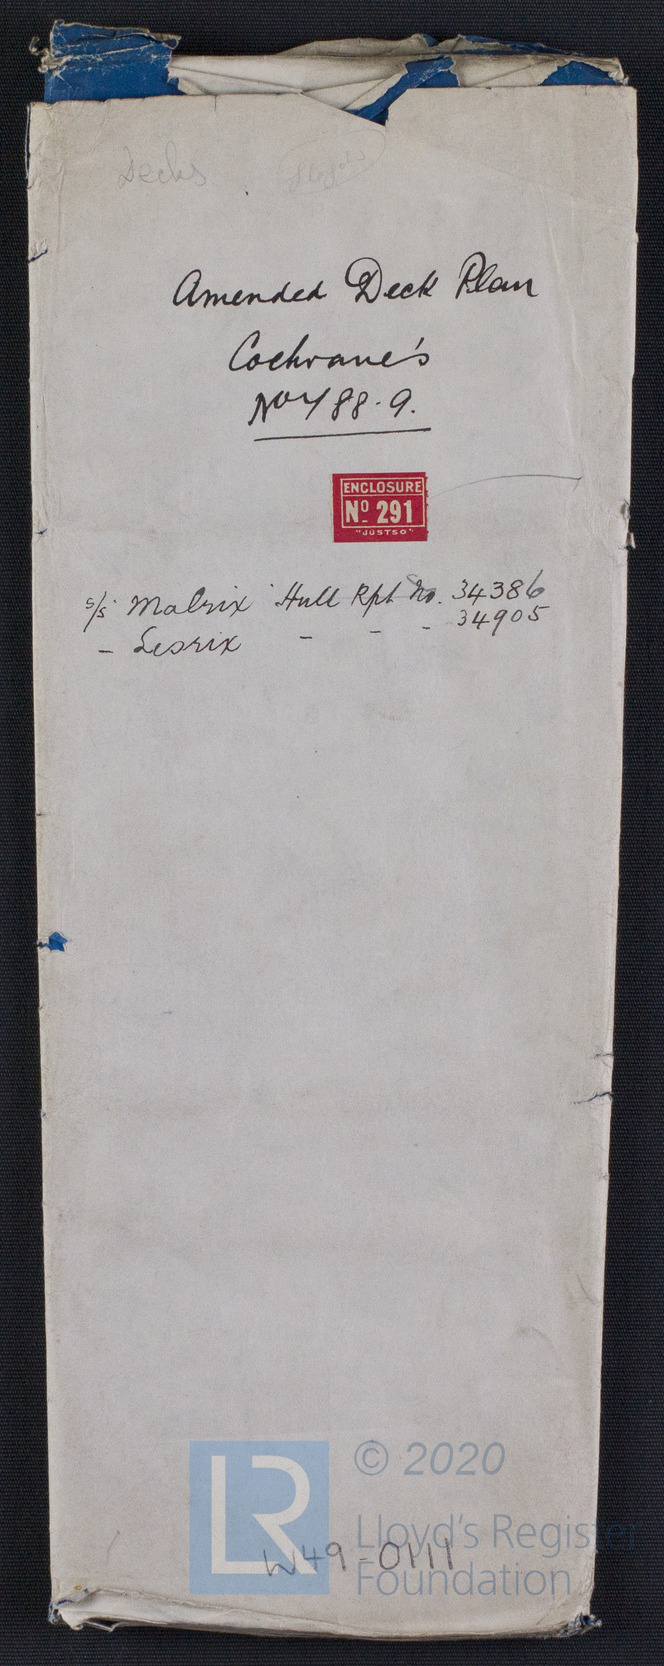 Decks
Amended Deck Plan
Cochrane's
Nos 788-9.
ENCLOSURE
No 291
"JUSTSO"
s/s Malrix Hull Rpt No. 34386
- Lesrix - - - 34905
© 2020
Lloyd's Register
Foundation
LR
W49-0111